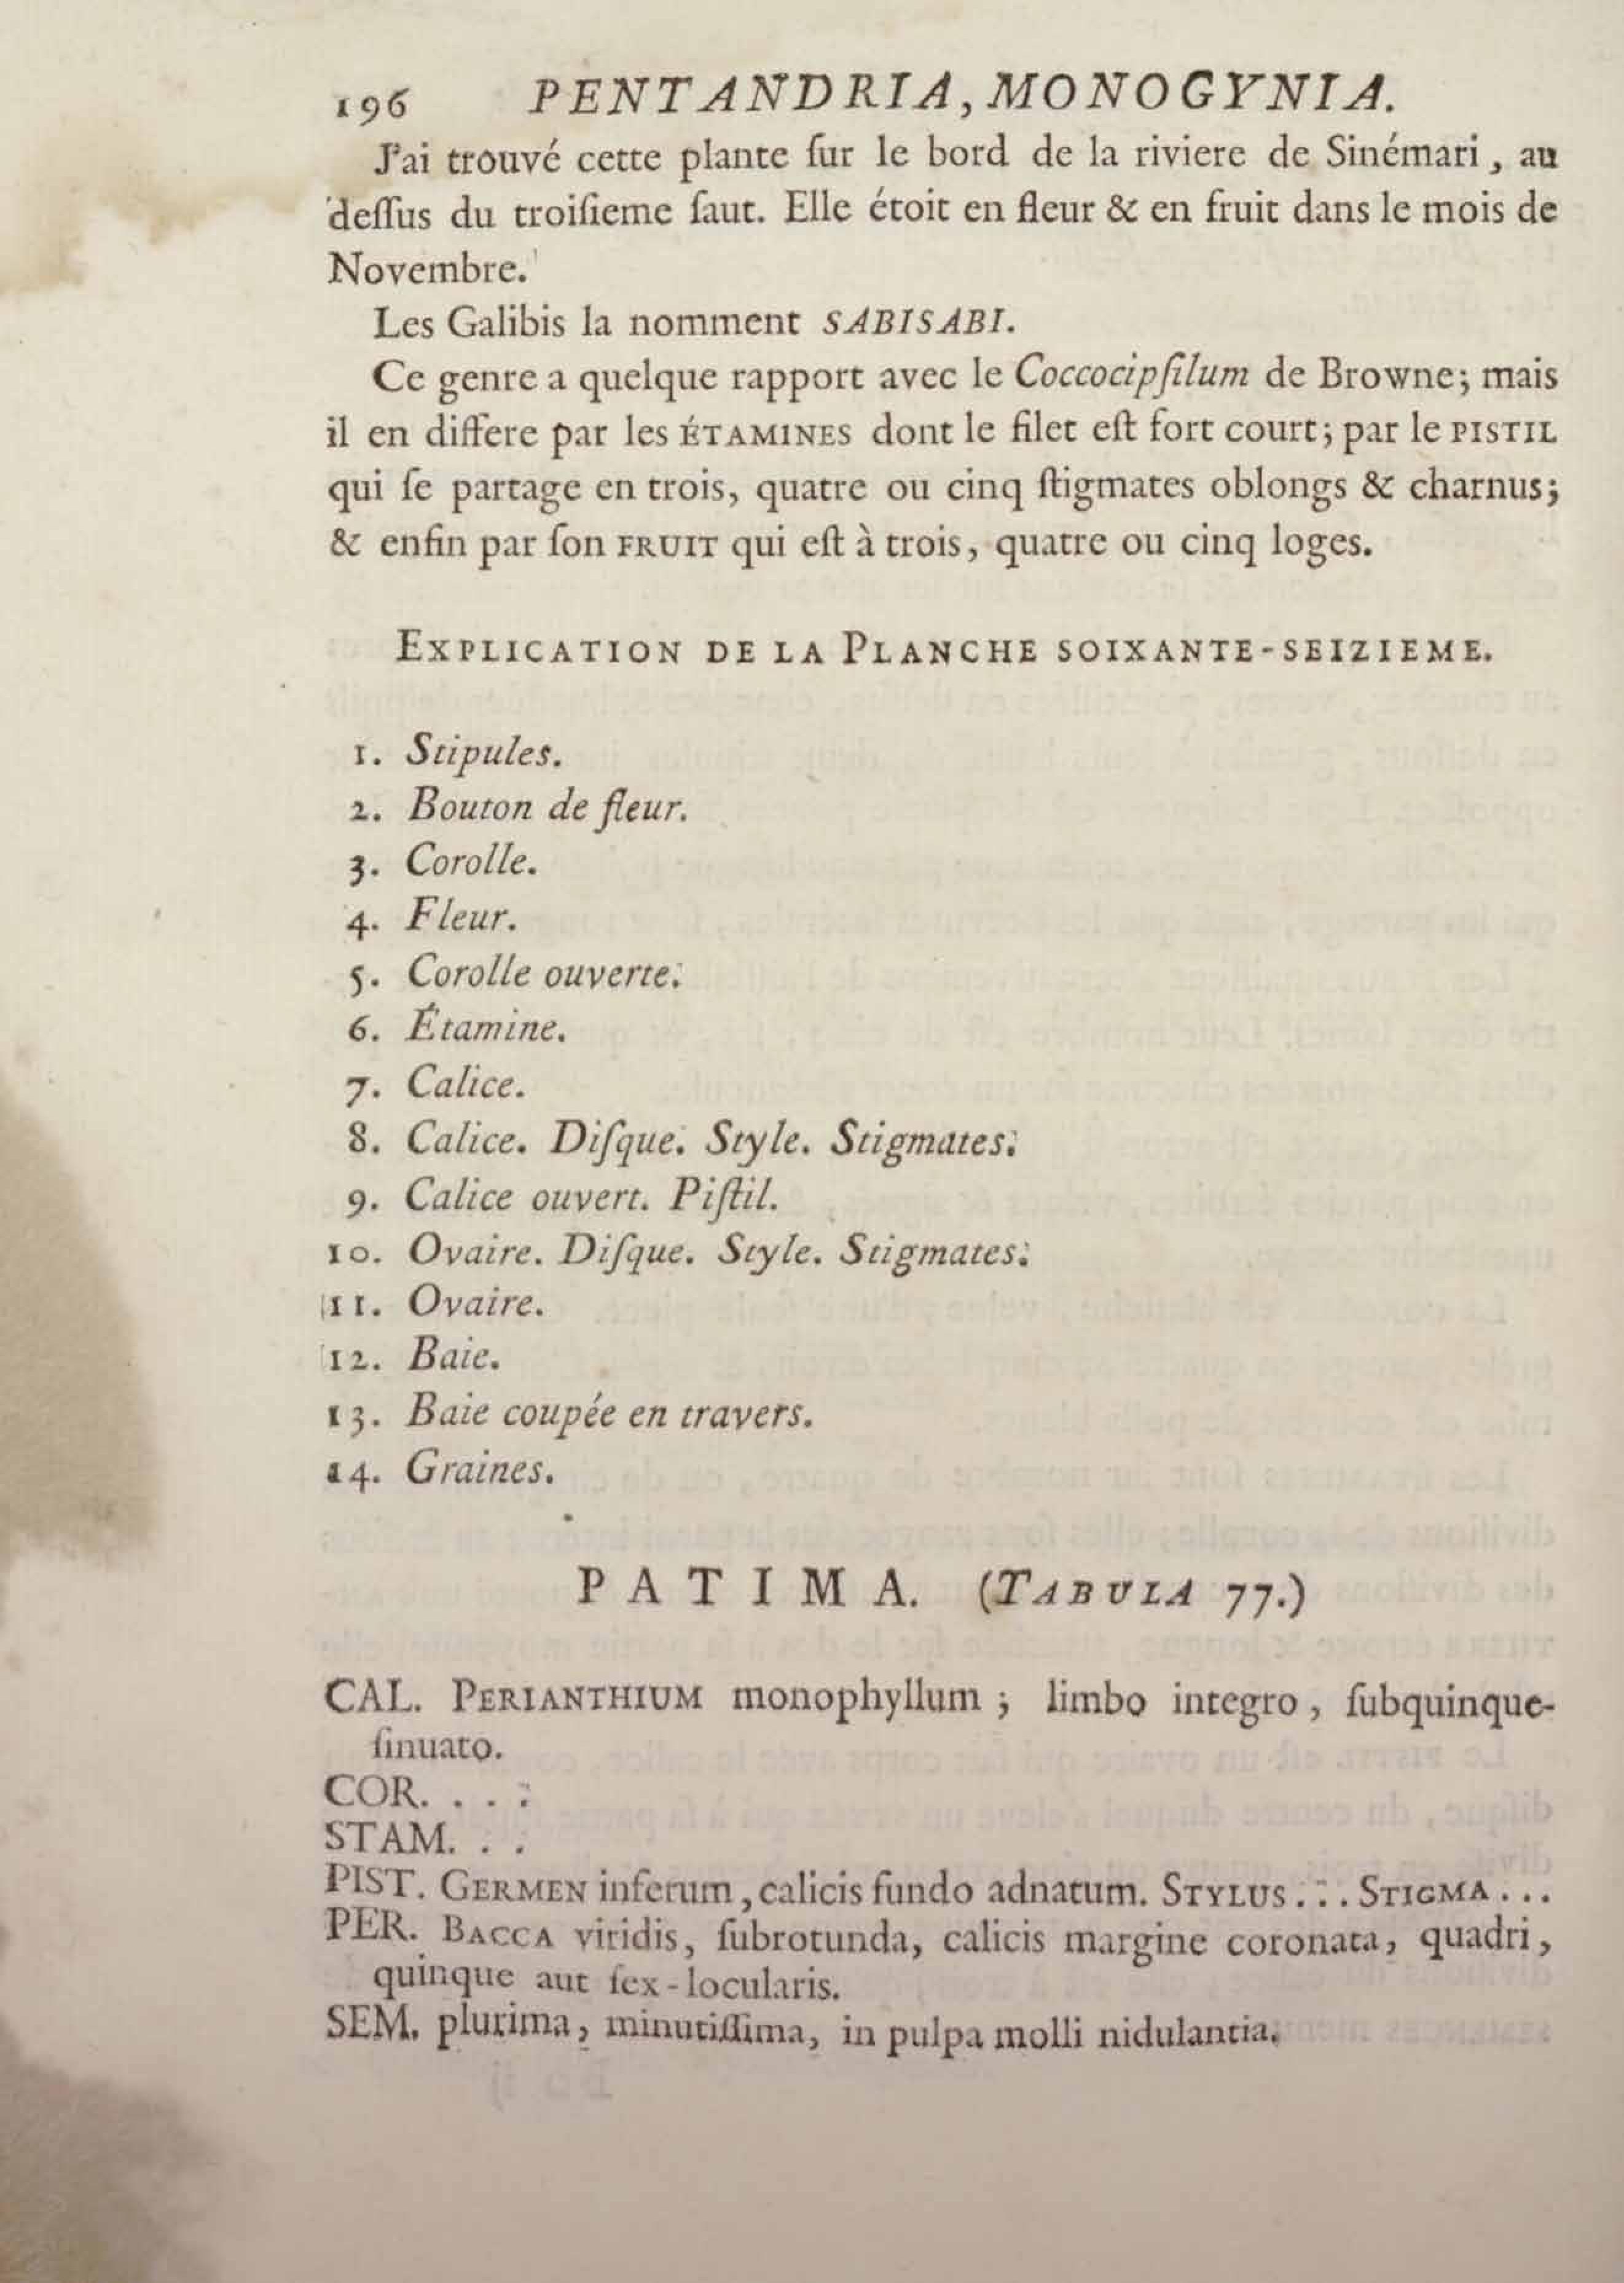 196 PENTANDRIA, MONOGYNIA.
J'ai trouvé cette plante ſur le bord de la riviere de Sinémari, au
deſſus du troiſieme ſaut. Elle étoit en fleur & en fruit dans le mois de
Novembre.
Les Galibis la nomment SABISABI.
Ce genre a quelque rapport avec le Coccocipſilum de Browne; mais
il en differe par les ÉTAMINES dont le filet eſt fort court; par le PISTIL
qui ſe partage en trois, quatre ou cinq ſtigmates oblongs & charnus;
& enfin par ſon FRUIT qui eſt à trois, quatre ou cinq loges.
EXPLICATION DE LA PLANCHE SOIXANTE-SEIZIEME.
1. Stipules.
2. Bouton de fleur.
3. Corolle.
4. Fleur.
5. Corolle ouverte.
6. Étamine.
7. Calice.
8. Calice. Diſque. Style. Stigmates.
9. Calice ouvert. Piſtil.
10. Ovaire. Diſque. Style. Stigmates.
11. Ovaire.
12. Baie.
13. Baie coupée en travers.
14. Graines.
PATIMA. (TABULA 77.)
CAL. PERIANTHIUM monophyllum; limbo integro, ſubquinque-
ſinuato.
COR. . . .
STAM. . .
PIST. GERMEN inferum, calicis fundo adnatum. STYLUS... STIGMA...
PER. BACCA viridis, ſubrotunda, calicis margine coronata, quadri,
quinque aut ſex-locularis.
SEM. plurima, minutiſſima, in pulpa molli nidulantia.